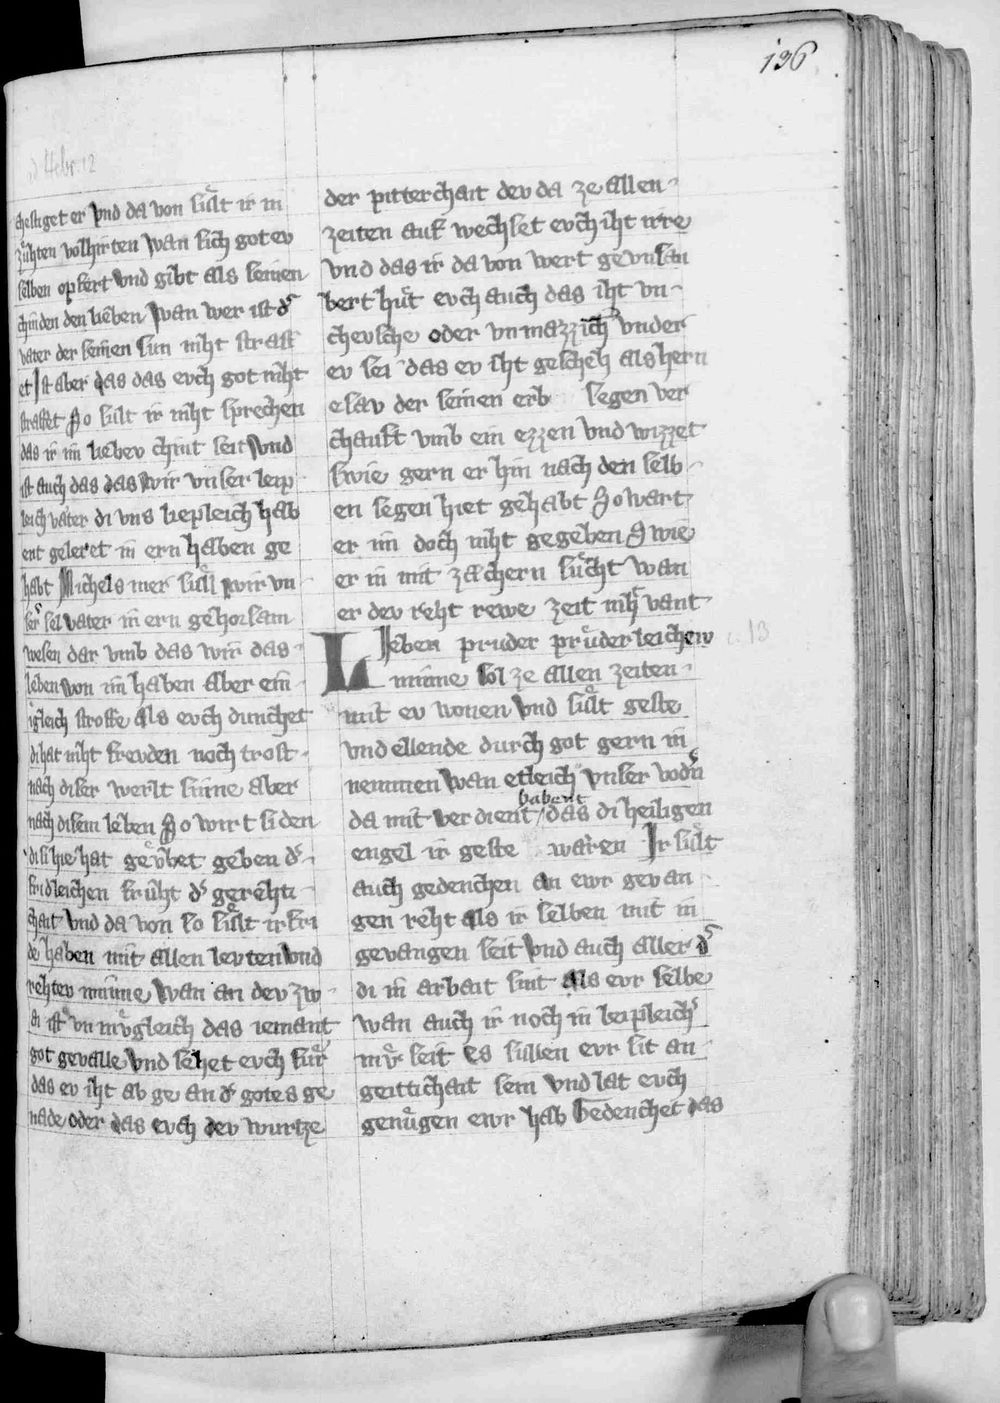 196
ad Hebr. 12
chestiget er vnd da von sült ir in
zühten volhirten wan sich got ev
selben opfert vnd gibt als seinen
chinden den lieben Wan wer ist dˢ
vater der seinen sun niht straff
et Ist aber das das evch got niht
straffet So sült ir niht sprechen
das ir im liebev chint seit Vnd
ist auch das das wir vnser leip
leich vater di vns liepleich hab
ent geleret in ern haben ge
habt Michels mer süll wir vn
serˢ sel vater in ern gehorsam
wesen dar vmb das wir das
leben von im haben aber ein
igleich stroffe als evch dunchet
di hat niht frevden noch trost
nach diser werlt sinne aber
nach disem leben So wirt si den
di si hie hat geübet geben dˢ
fridleichen früht dˢ gerehti
chait Vnd da von so sült ir fri
de haben mit allen levten vnd
rehtev minne Wan an dev zw
ai ist vnmügleich das iemant
got gevalle Vnd sehet evch für
das ev iht ab ge an dˢ gotes ge
nade oder das evch dev wurtze
der pitterchait dev da ze allen
zeiten auf wechset evch iht irre
vnd das ir da von wert gevnsau
bert hüt evch auch das iht vn
chevsche oder vnmazzich vnder
ev sei das ev iht gescheh als hern
esav der seinen erb segen ver
chauft vmb ein ezzen vnd wizzet
swie gern er hin nach den selb
en segen hiet gehabt So wart
er im doch niht gegeben Swie
er in mit zæchern sücht wan
er dev reht rewe zeit niht vant
Lieben pruder prüderleichew 13
minne sol ze allen zeiten
mit ev wonen vnd sült geste
vnd ellende durch got gern in
nemmen Wan etleich vnser vodˢn
habent
da mit verdient / das di heiligen
engel ir geste waren Ir sült
auch gedenchen an ewr gevan
gen reht als ir selben mit in
gevangen seit Vnd auch aller dˢ
di in arbait sint als evr selbe
wan auch ir noch in leipleichˢ
mür seit Es süllen evr sit an
geittichait sein vnd lat evch
genügen ewr hab Gedenchet das